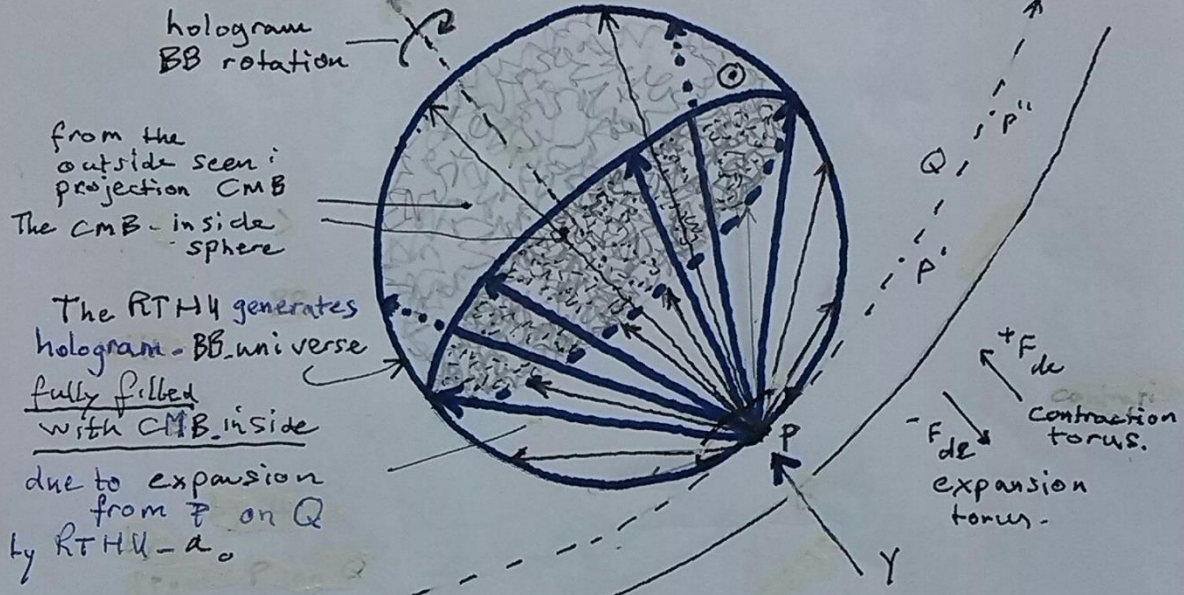 hologram
BB rotation
from the
outside seen:
projection CMB
The CMB - inside
sphere
The RTHU generates
hologram - BB - universe
fully filled
with CMB inside
due to expansion
from P on Q
by RTHU - a.
P
P'
P"
Q
+Fde
contraction
torus.
-Fde
expansion
torus.
Y